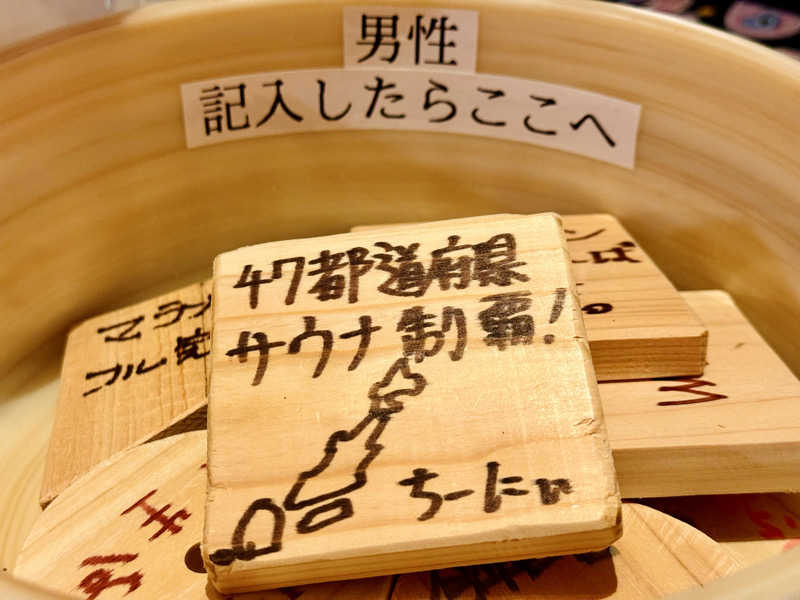 男性
記入したらここへ
47都道府県
サウナ制覇!
ちーにぃ
マラソ